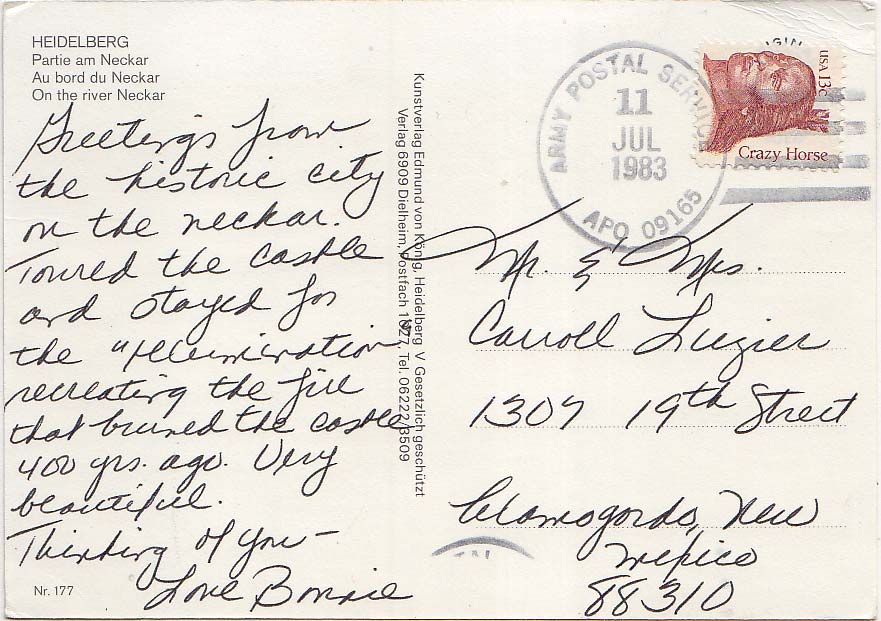 HEIDELBERG
Partie am Neckar
Au bord du Neckar
On the river Neckar
Greetings from
the historic city
on the neckar.
Toured the castle
and stayed for
the "Illumination
recreating the fire
that burned the castle
400 yrs. ago. Very
beautiful.
Thinking of you –
Love Bonnie
Nr. 177
Kunstverlag Edmund von König, Heidelberg V Gesetzlich geschützt
Verlag 6909 Dielheim, Postfach 1027, Tel. 06222/3509
ARMY POSTAL SERVICE
11
JUL
1983
APO 09165
USA 13c
Crazy Horse
Mr. & Mrs.
Carroll Luzier
1307 19th Street
Alamogordo, New
Mexico
88310